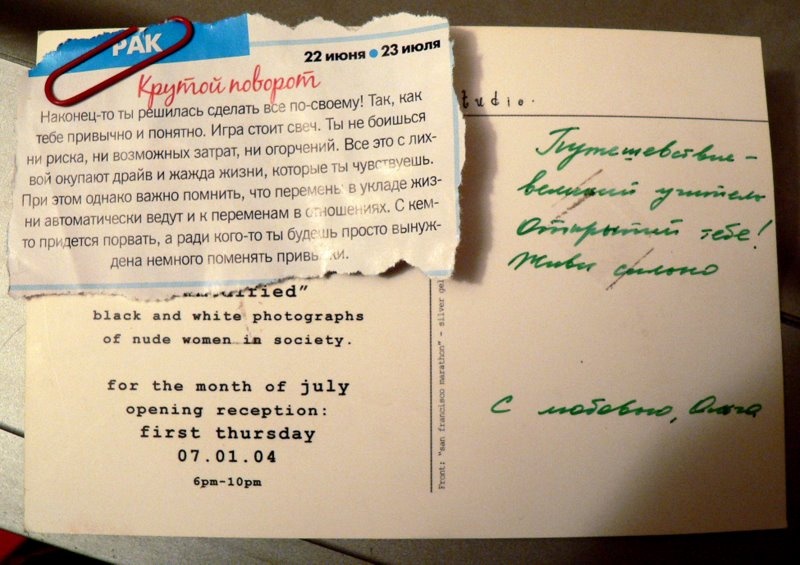 РАК
22 июня • 23 июля
Крутой поворот
Наконец-то ты решилась сделать все по-своему! Так, как
тебе привычно и понятно. Игра стоит свеч. Ты не боишься
ни риска, ни возможных затрат, ни огорчений. Все это с лих-
вой окупают драйв и жажда жизни, которые ты чувствуешь.
При этом однако важно помнить, что перемены в укладе жиз-
ни автоматически ведут и к переменам в отношениях. С кем-
то придется порвать, а ради кого-то ты будешь просто вынуж-
дена немного поменять привычки.
black and white photographs
of nude women in society.
for the month of july
opening reception:
first thursday
07.01.04
6pm-10pm
Front: "san francisco marathon" - silver gel
tudio.
Путешествие -
великий учитель
Открытий тебе!
Живи сильно
С любовью, Ольга